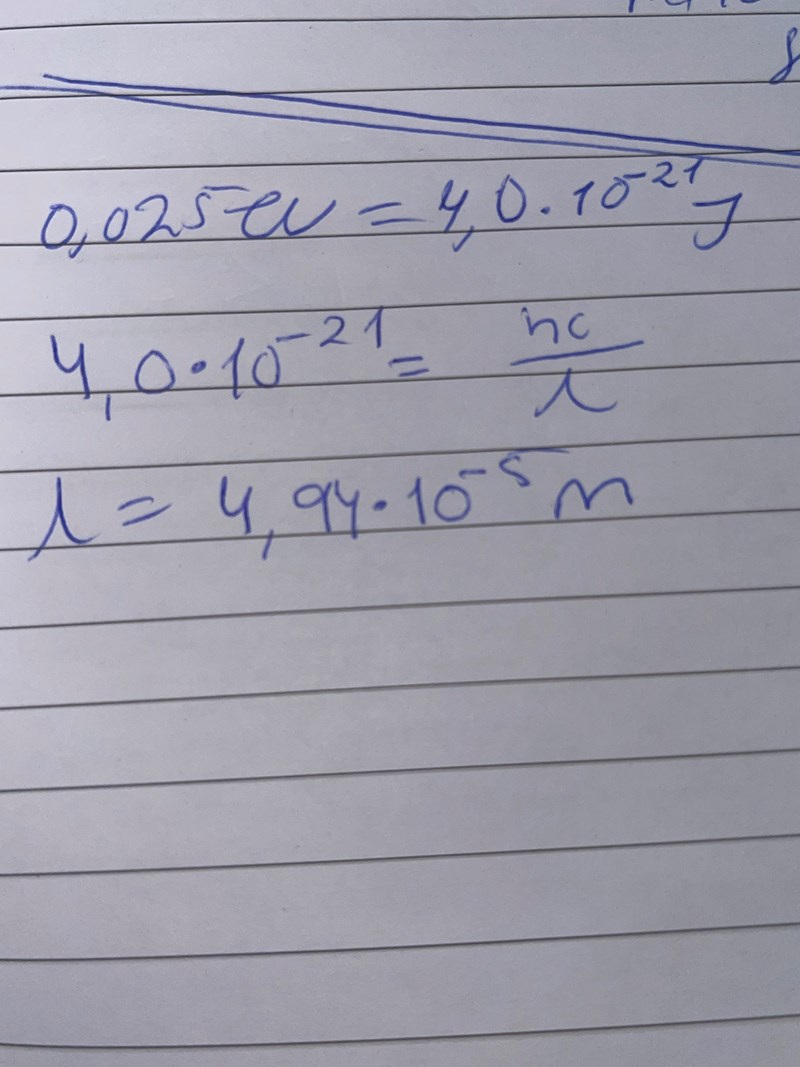 0,025 eV = 4,0 · 10⁻²¹ J
4,0 · 10⁻²¹ = hc/λ
λ = 4,94 · 10⁻⁵ m